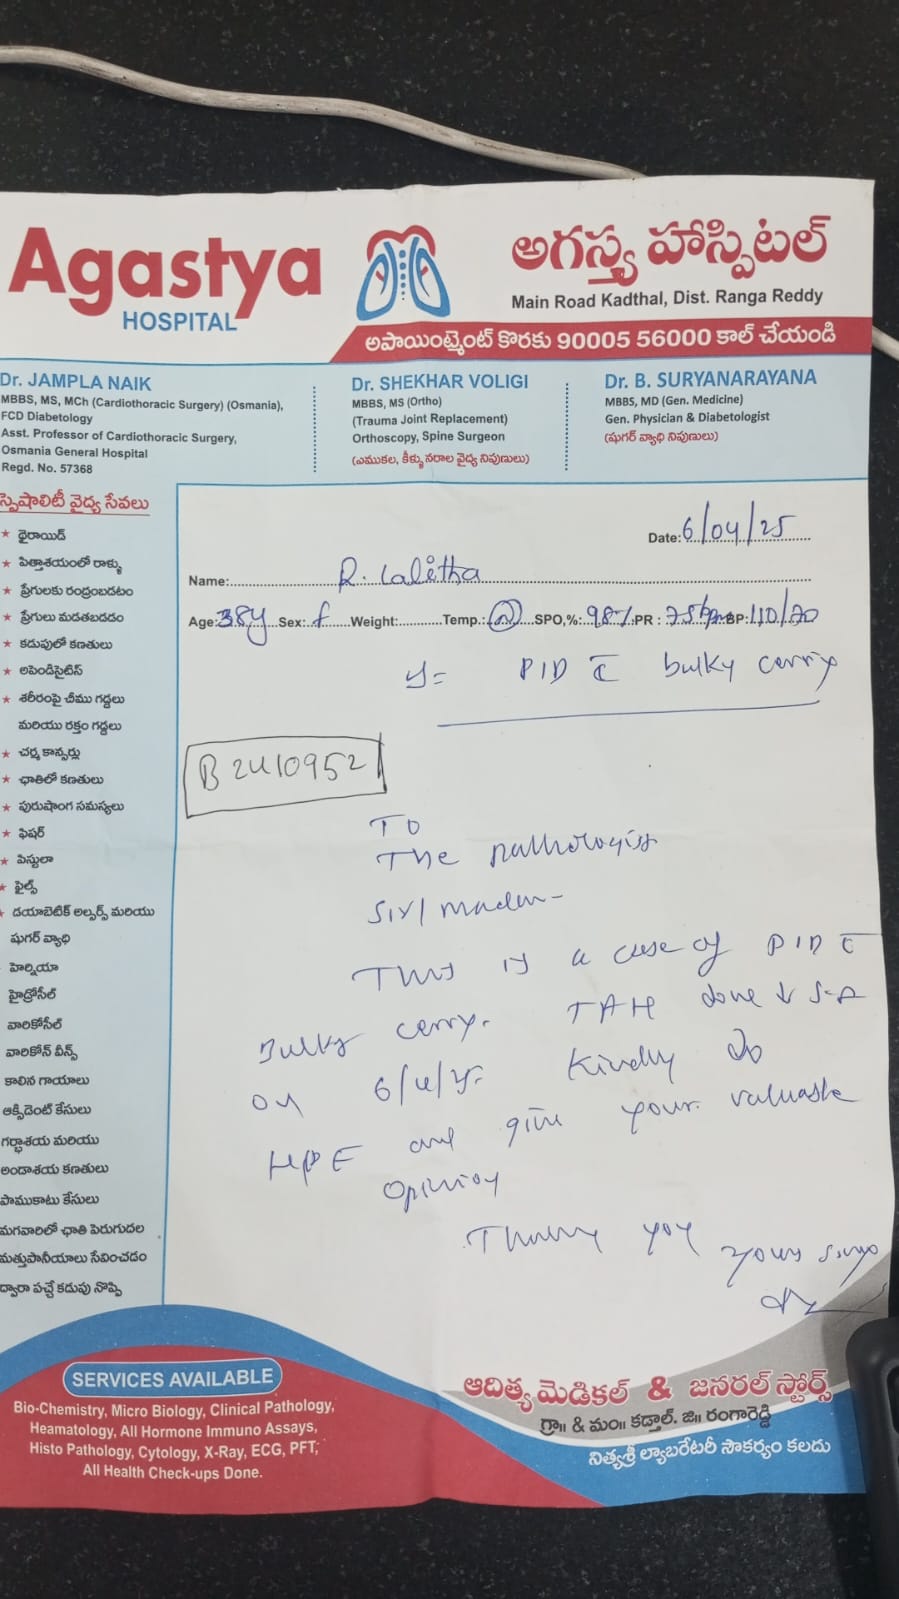 Agastya
HOSPITAL
అగస్త్య హాస్పిటల్
Main Road Kadthal, Dist. Ranga Reddy
అపాయింట్మెంట్ కొరకు 90005 56000 కాల్ చేయండి
Dr. JAMPLA NAIK
MBBS, MS, MCh (Cardiothoracic Surgery) (Osmania),
FCD Diabetology
Asst. Professor of Cardiothoracic Surgery,
Osmania General Hospital
Regd. No. 57368
Dr. SHEKHAR VOLIGI
MBBS, MS (Ortho)
(Trauma Joint Replacement)
Orthoscopy, Spine Surgeon
(ఎముకల, కీళ్ళు నరాల వైద్య నిపుణులు)
Dr. B. SURYANARAYANA
MBBS, MD (Gen. Medicine)
Gen. Physician & Diabetologist
(షుగర్ వ్యాధి నిపుణులు)
స్పెషాలిటీ వైద్య సేవలు
★ థైరాయిడ్
★ పిత్తాశయంలో రాళ్ళు
★ ప్రేగులకు రంధ్రంబడటం
★ ప్రేగులు మడతబడడం
★ కడుపులో కణతులు
★ అపెండిసైటిస్
★ శరీరంపై చీము గడ్డలు
మరియు రక్తం గడ్డలు
★ చర్మ కాన్సర్లు
★ ఛాతిలో కణతులు
★ పురుషాంగ సమస్యలు
★ ఫిషర్
★ పిస్టులా
★ ఫైల్స్
★ డయాబెటిక్ అల్సర్స్ మరియు
షుగర్ వ్యాధి
హెర్నియా
హైడ్రోసీల్
వారికోసీల్
వారికోన్ వీన్స్
కాలిన గాయాలు
ఆక్సిడెంట్ కేసులు
గర్భాశయ మరియు
అండాశయ కణతులు
పాముకాటు కేసులు
మగవారిలో ఛాతి పెరుగుదల
మత్తుపానీయాలు సేవించడం
ద్వారా పచ్చే కడుపు నొప్పి
Date: 6/04/25
Name: R. Lalitha
Age: 38y Sex: f Weight: Temp.: SPO,%: 98% PR : 75 BP: 110/70
PID c̄ bulky
B2410952
To
The pathologist
Sir/
This is a case of PID c̄
Bulky TAH done
on Kindly do
HPE and give your valuable
opinion
Thank you
yours
SERVICES AVAILABLE
Bio-Chemistry, Micro Biology, Clinical Pathology,
Heamatology, All Hormone Immuno Assays,
Histo Pathology, Cytology, X-Ray, ECG, PFT,
All Health Check-ups Done.
ఆదిత్య మెడికల్ & జనరల్ స్టోర్స్
గ్రా॥ & మం॥ కడ్తాల్. జి॥ రంగారెడ్డి
నిత్యశ్రీ ల్యాబరేటరీ సౌకర్యం కలదు